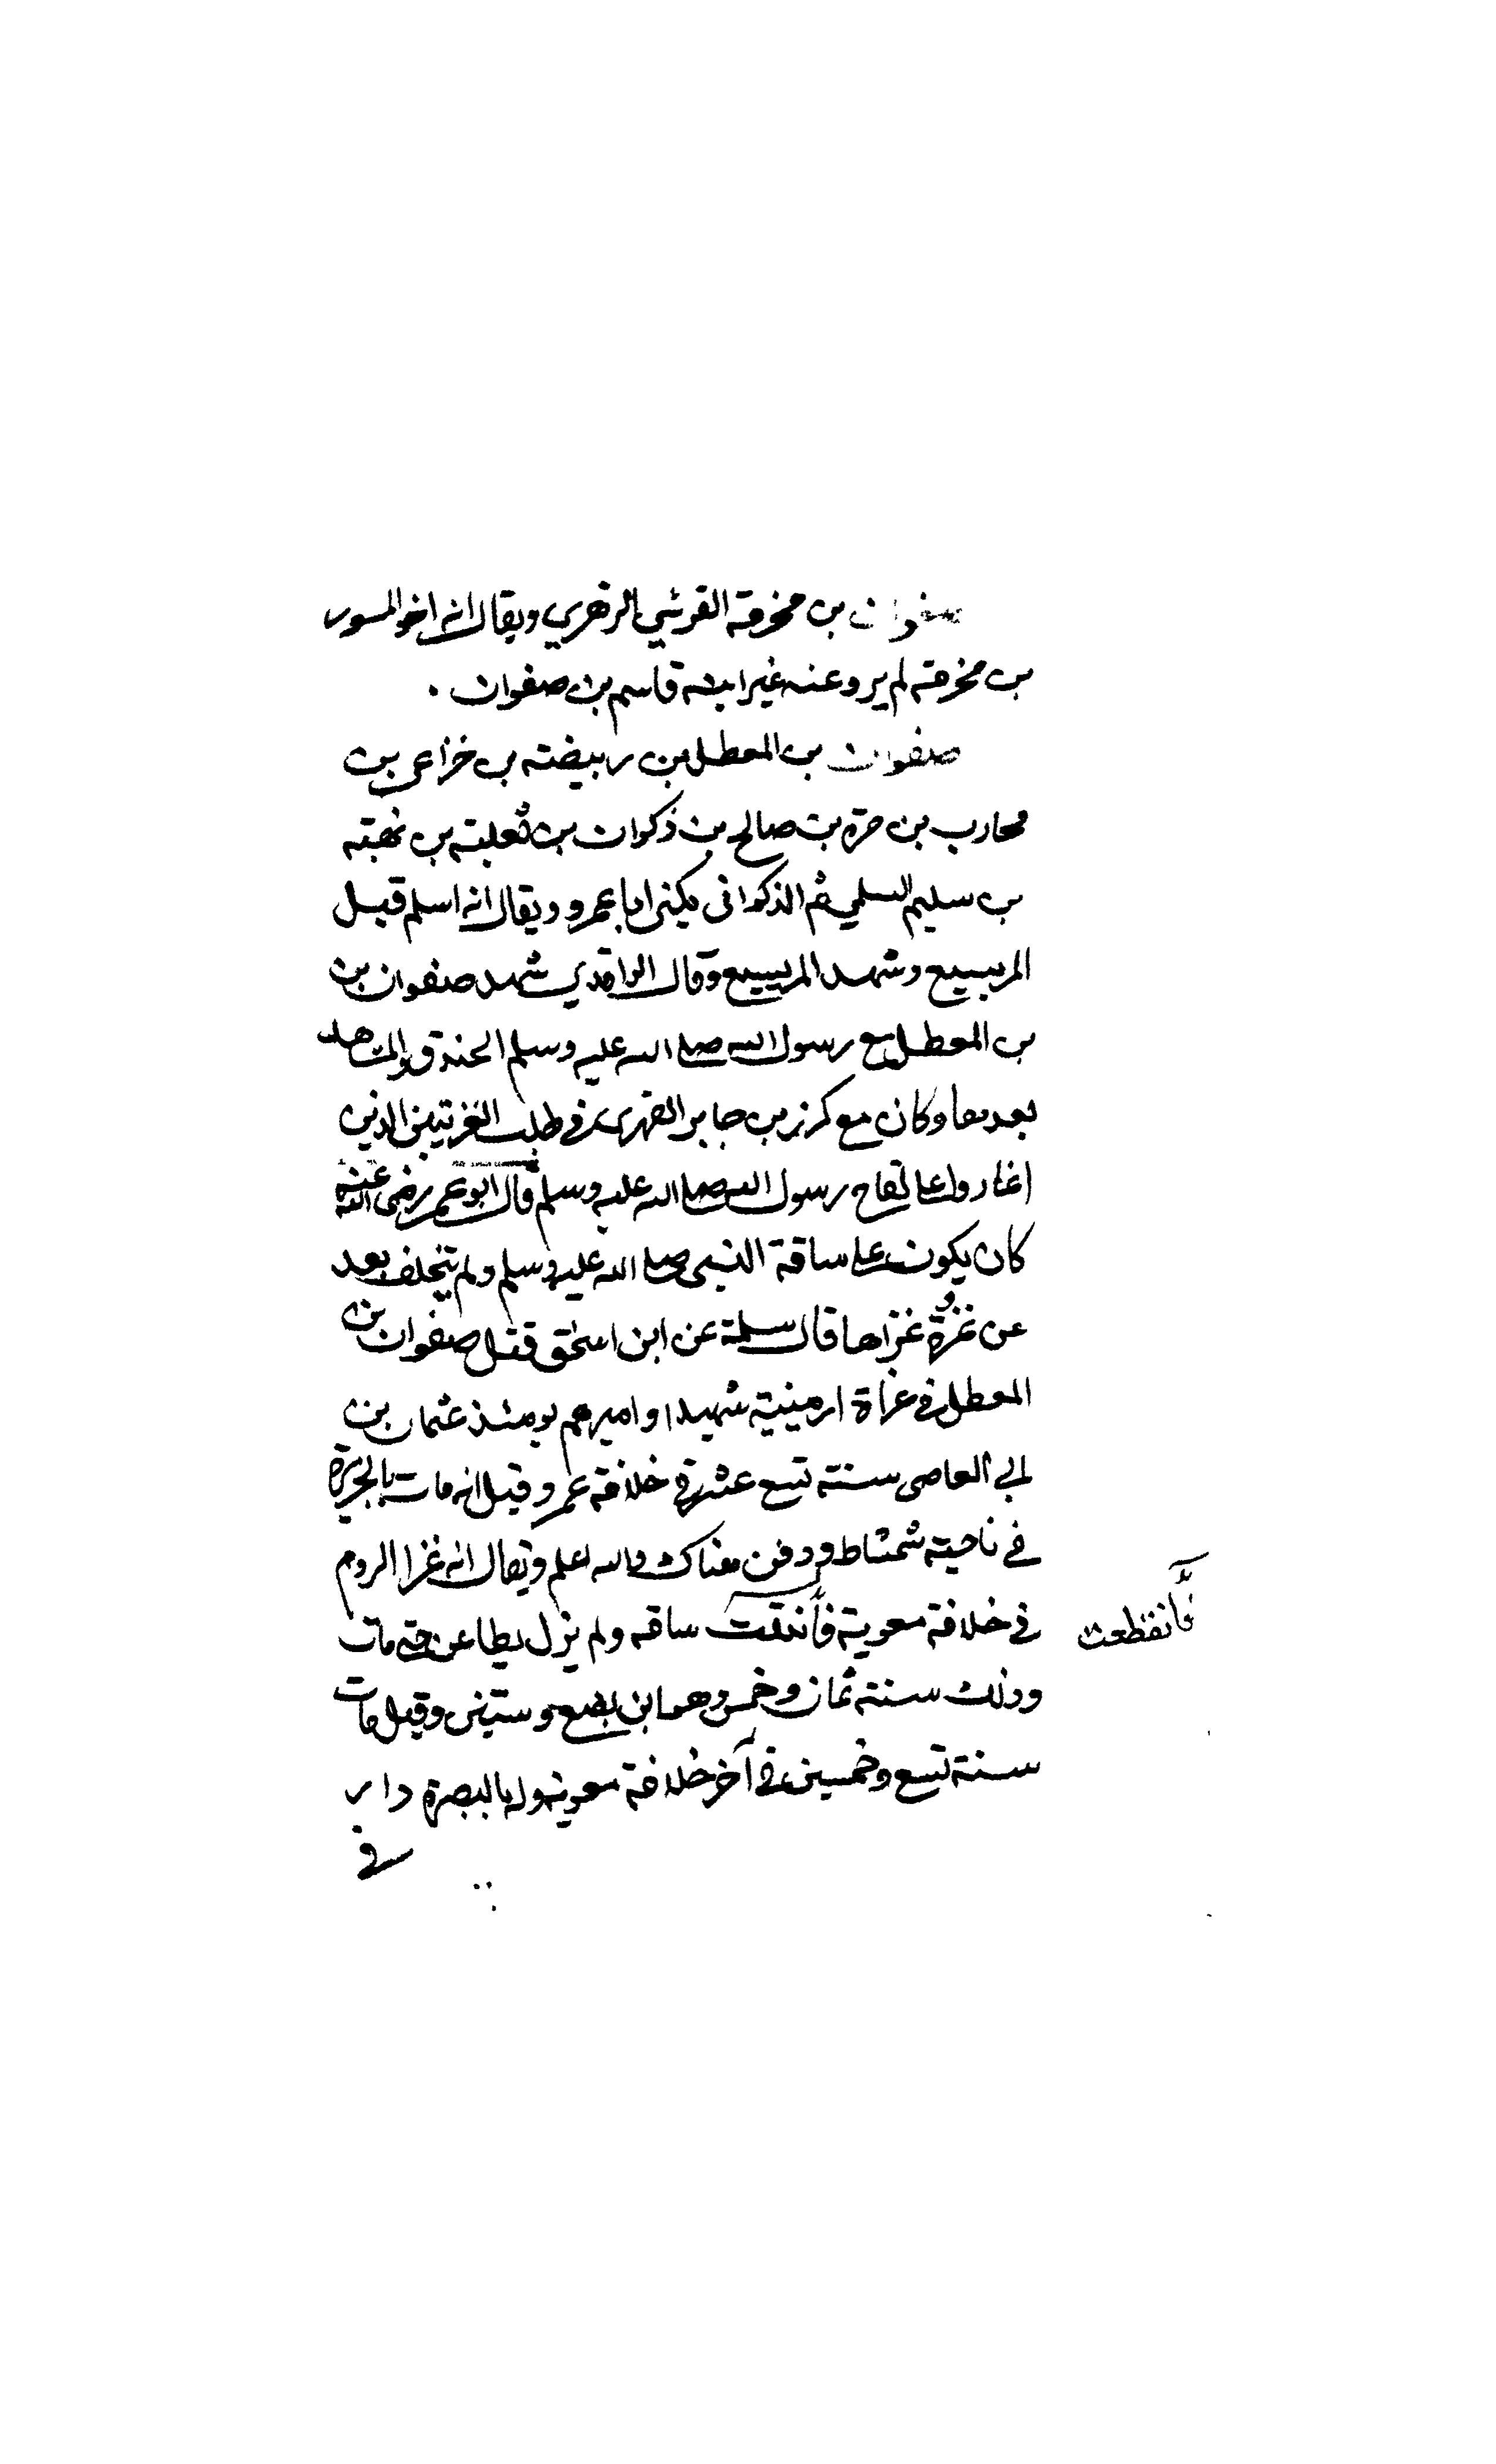 صفوان بن مخرمة القرشي الزهري ويقال انه اخو المسور
بن مخرمة لم يرو عنه غير ابنه قاسم بن صفوان .
صفوان بن المعطل بن ربيضته بن خزاعى بن
محارب بن مرة بن صالح بن ذكوان بن ثعلبته بن بهبته
بن سليم السلمي ثم الذكوانى يكنى ابا عمرو ويقال انه اسلم قبل
المريسيع وشهد المريسيع وقال الواقدي شهد صفوان بن
بن المعطل مع رسول الله صلى الله عليه وسلم الخندق والمشاهد
بعدها وكان مع كرز بن جابر الفهرى فى طلب العرنيين الذين
اغاروا على لقاح رسول الله صلى الله عليه وسلم قال ابو عمر رضى الله عنه
كان يكون على ساقة النبى صلى الله عليه وسلم ولم يتخلف بعد
عن غزوة غزاها قال سلمة عن ابن اسحق قتل صفوان بن
المعطل فى غزاة ارمينية شهيدا واميرهم يومئذ عثمان بن
ابي العاصى سنته تسع عشرة فى خلافة عمر وقيل انه مات بالجزيرة
في ناحيته شمشاط ودفن هناك والله اعلم ويقال انه غزا الروم
فى خلافة معوية فأندقت ساقه ولم يزل يطاعن حتى مات
فأنقطعت
وذلك سنته ثمان وخمس وهو ابن بضع وستين وقيل مات
سنة تسع وخمسين فى آخر خلافة معوية وله بالبصرة دار
فى